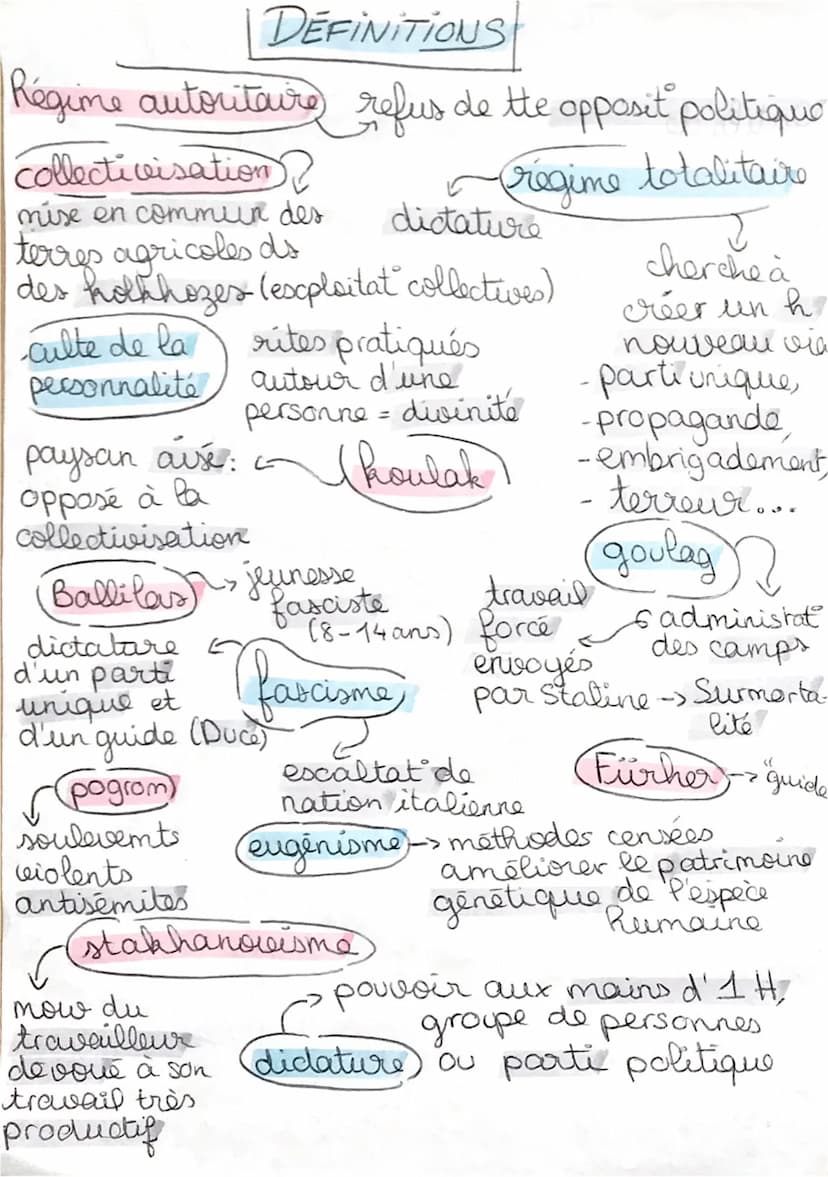 DÉFINITIONS
Régime autoritaire refus de tte opposit° politique
collectivisation
mise en commun des
terres agricoles ds
des kolkhozes (exploitat° collectives)
régime totalitaire
dictature
cherche à
créer un h
nouveau via
- parti unique,
- propagande,
- embrigadement,
- terreur...
culte de la
personnalité
rites pratiqués
autour d'une
personne = divinité
koulak
paysan aisé:
opposé à la
collectivisation
goulag
administrat°
des camps
travail
forcé
envoyés
par Staline -> Surmorta-
lité
Ballilas -> jeunesse
fasciste
(8-14 ans)
fascisme
dictature
d'un parti
unique et
d'un guide (Duce)
exaltat° de
nation italienne
Fürher -> "guide
pogrom
soulevemts
violents
antisémites
eugénisme -> méthodes censées
améliorer le patrimoine
génétique de l'espèce
humaine
stakhanovisme
mouv du
travailleur
dévoué à son
travail très
productif
dictature
pouvoir aux mains d'1 H,
groupe de personnes
ou parti politique